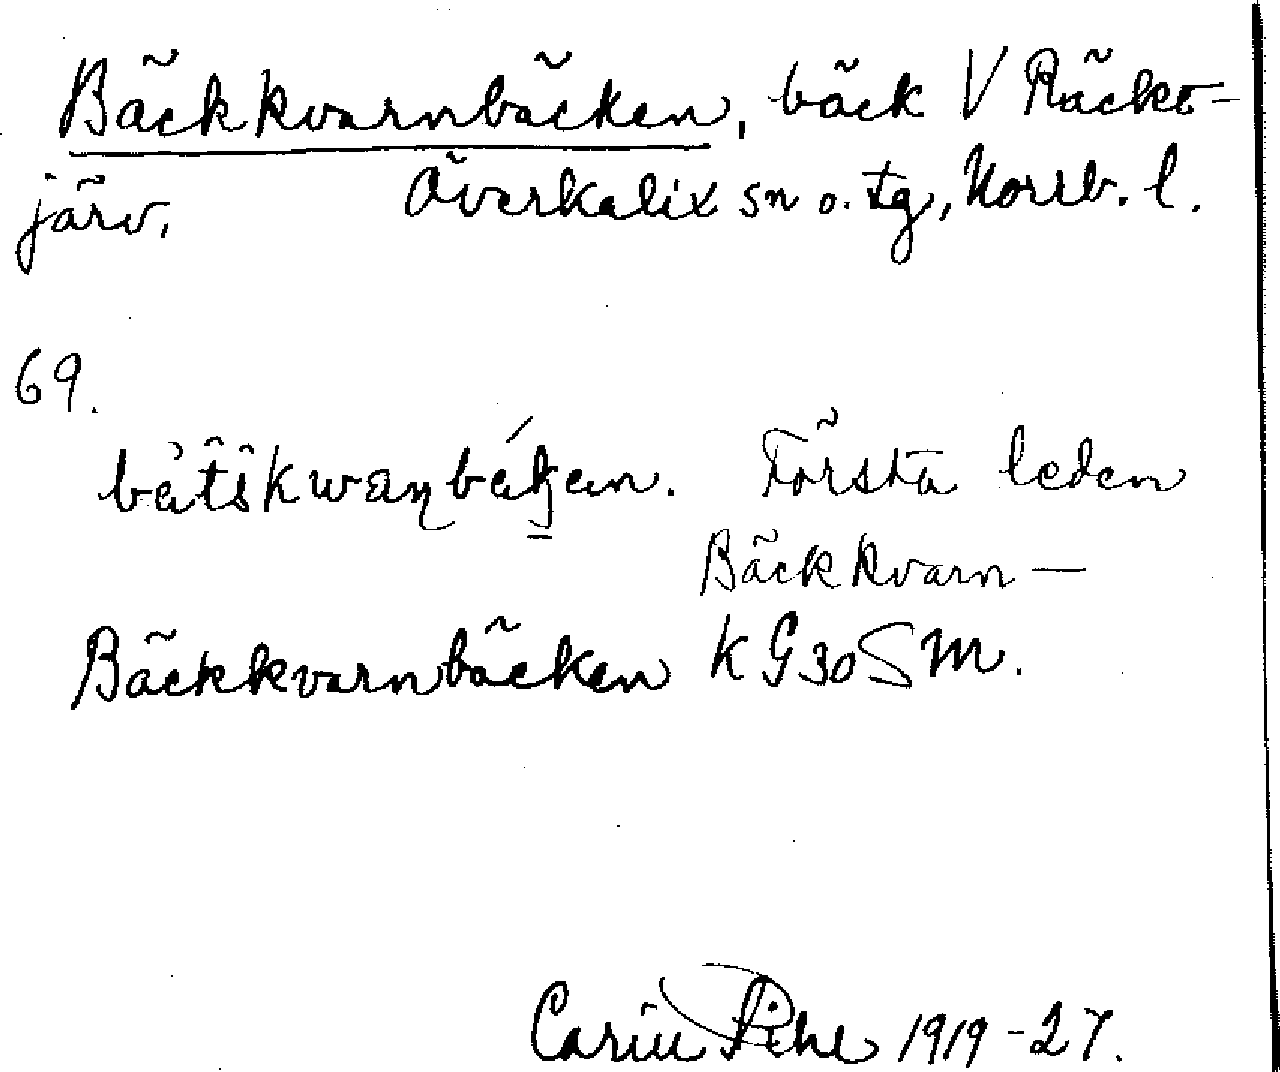 Bäckkvarnbäcken, bäck V Räckt-
järv, Överkalix sn o. tg, Norrb. l.
69.
Första leden
Bäckkvarn—
Bäckkvarnbäcken KG30SM.
Carin Pihl 1919-27.